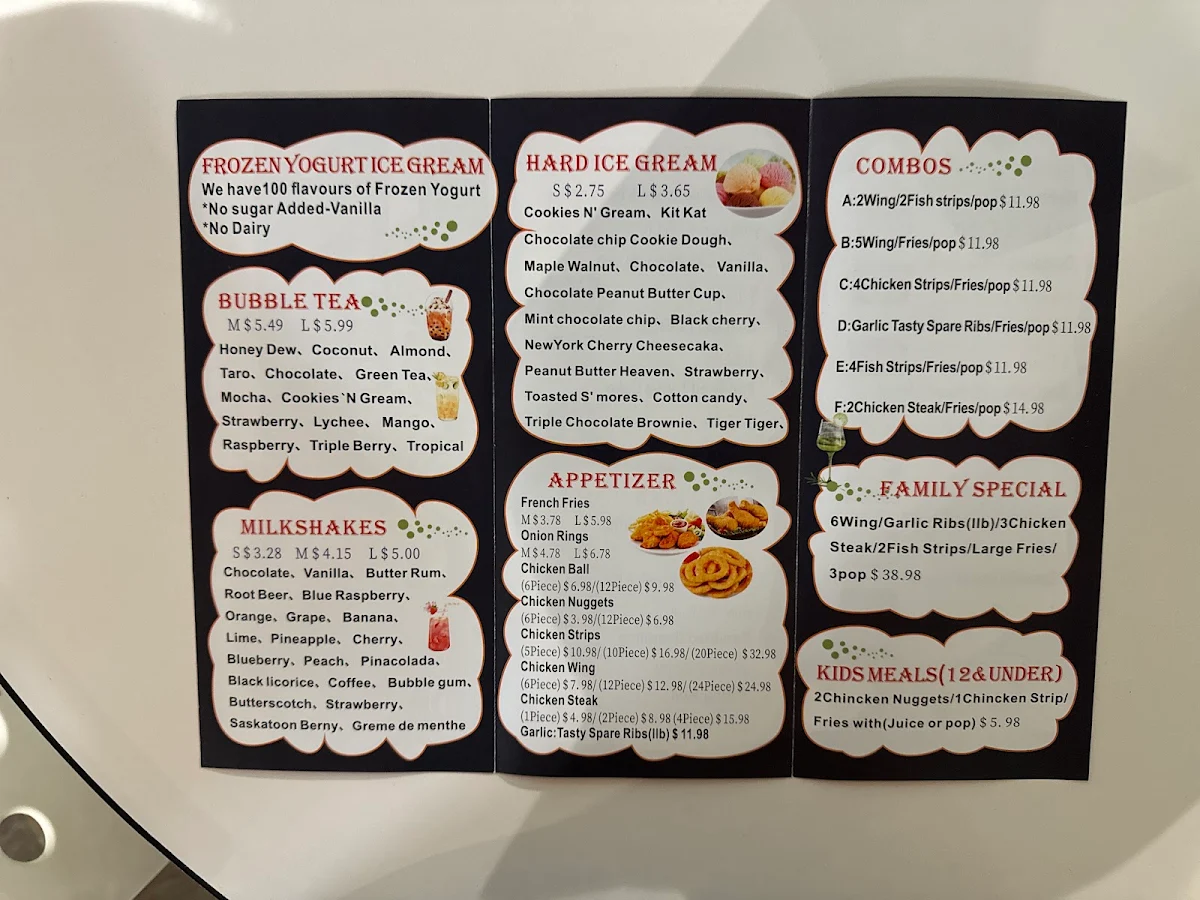 FROZEN YOGURT ICE GREAM
We have100 flavours of Frozen Yogurt
*No sugar Added-Vanilla
*No Dairy
BUBBLE TEA
M$5.49 L$5.99
Honey Dew、Coconut、Almond、
Taro、Chocolate、Green Tea、
Mocha、Cookies`N Gream、
Strawberry、Lychee、Mango、
Raspberry、Triple Berry、Tropical
MILKSHAKES
S$3.28 M$4.15 L$5.00
Chocolate、Vanilla、Butter Rum、
Root Beer、Blue Raspberry、
Orange、Grape、Banana、
Lime、Pineapple、Cherry、
Blueberry、Peach、Pinacolada、
Black licorice、Coffee、Bubble gum、
Butterscotch、Strawberry、
Saskatoon Berny、Greme de menthe
HARD ICE GREAM
S$2.75 L$3.65
Cookies N' Gream、Kit Kat
Chocolate chip Cookie Dough、
Maple Walnut、Chocolate、Vanilla、
Chocolate Peanut Butter Cup、
Mint chocolate chip、Black cherry、
NewYork Cherry Cheesecaka、
Peanut Butter Heaven、Strawberry、
Toasted S' mores、Cotton candy、
Triple Chocolate Brownie、Tiger Tiger、
APPETIZER
French Fries
M$3.78 L$5.98
Onion Rings
M$4.78 L$6.78
Chicken Ball
(6Piece)$6.98/(12Piece)$9.98
Chicken Nuggets
(6Piece)$3.98/(12Piece)$6.98
Chicken Strips
(5Piece)$10.98/(10Piece)$16.98/(20Piece) $32.98
Chicken Wing
(6Piece)$7.98/(12Piece)$12.98/(24Piece)$24.98
Chicken Steak
(1Piece)$4.98/(2Piece)$8.98(4Piece)$15.98
Garlic:Tasty Spare Ribs(llb)$11.98
COMBOS
A:2Wing/2Fish strips/pop$11.98
B:5Wing/Fries/pop$11.98
C:4Chicken Strips/Fries/pop$11.98
D:Garlic Tasty Spare Ribs/Fries/pop$11.98
E:4Fish Strips/Fries/pop$11.98
F:2Chicken Steak/Fries/pop$14.98
FAMILY SPECIAL
6Wing/Garlic Ribs(llb)/3Chicken
Steak/2Fish Strips/Large Fries/
3pop $38.98
KIDS MEALS(12&UNDER)
2Chincken Nuggets/1Chincken Strip/
Fries with(Juice or pop)$5.98